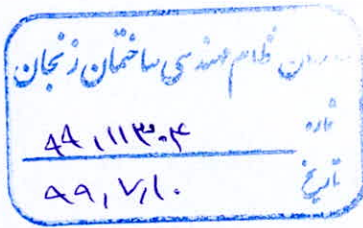 نظام مهندسی ساختمان زنجان
شماره ۹۹,۱۱۳۰۴
تاریخ ۹۹,۷,۱۰